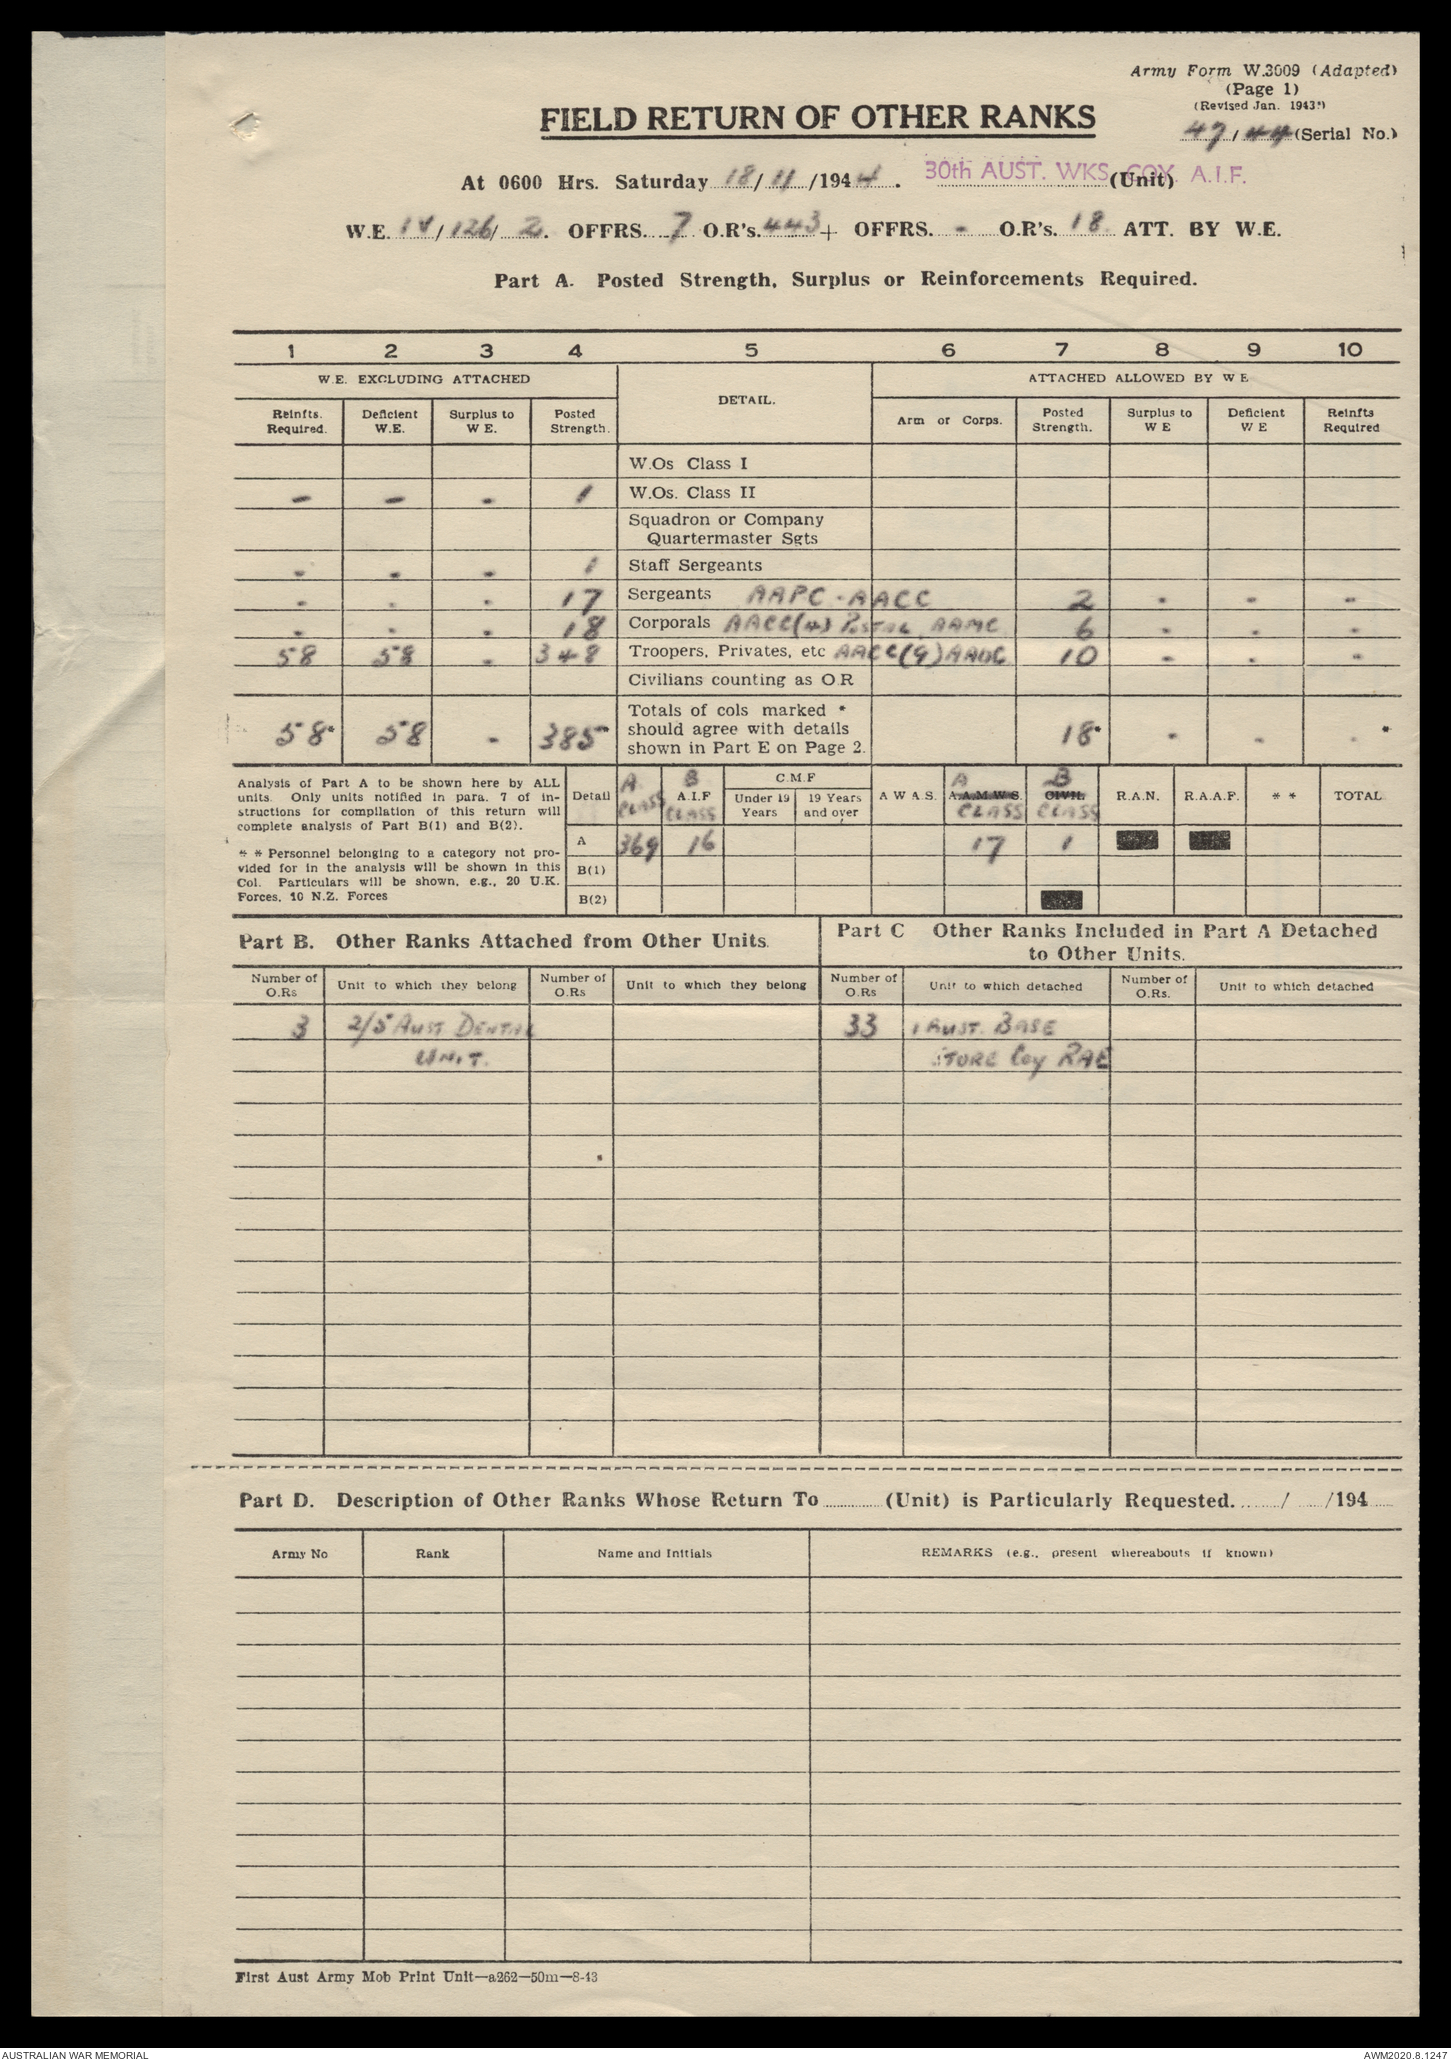 Army Form W.3009 (Adapted)
(Page 1)
(Revised Jan. 1943)
FIELD RETURN OF OTHER RANKS
47/44 (Serial No.)
At 0600 Hrs. Saturday 18/11/1944. 30th AUST. WKS. COY. A.I.F. (Unit)
W.E. IV/126/2. OFFRS. 7 O.R's. 443 + OFFRS. - O.R's. 18 ATT. BY W.E.
Part A. Posted Strength, Surplus or Reinforcements Required.
1 2 3 4 5 6 7 8 9 10
W.E. EXCLUDING ATTACHED DETAIL. ATTACHED ALLOWED BY W E
Reinfts. Required. Deficient W.E. Surplus to W E. Posted Strength. Arm or Corps. Posted Strength. Surplus to W E Deficient W E Reinfts Required
W.Os Class I
- - - 1 W.Os. Class II
Squadron or Company
Quartermaster Sgts
- - - 1 Staff Sergeants
- - - 17 Sergeants AAPC - AACC 2 - - -
- - - 18 Corporals AACC(4) POSTAL AAMC 6 - - -
58 58 - 348 Troopers, Privates, etc AACC(9) AAOC 10 - - -
Civilians counting as O.R
Totals of cols marked *
should agree with details
shown in Part E on Page 2.
58* 58 - 385* 18* - - - *
Analysis of Part A to be shown here by ALL
units. Only units notified in para. 7 of in-
structions for compilation of this return will
complete analysis of Part B(1) and B(2).
* * Personnel belonging to a category not pro-
vided for in the analysis will be shown in this
Col. Particulars will be shown, e.g., 20 U.K.
Forces, 10 N.Z. Forces
Detail A CLASS B A.I.F CLASS C.M.F Under 19 Years 19 Years and over A W A.S. A A.A.M.W.S. CLASS B CIVIL. CLASS R.A.N. R.A.A.F. * * TOTAL
A 369 16 17 1
B(1)
B(2)
Part B. Other Ranks Attached from Other Units.
Part C Other Ranks Included in Part A Detached
to Other Units.
Number of O.Rs Unit to which they belong Number of O.Rs Unit to which they belong Number of O.Rs Unit to which detached Number of O.Rs. Unit to which detached
3 2/5 AUST DENTAL 33 1 AUST. BASE
UNIT. STORE Coy RAE
Part D. Description of Other Ranks Whose Return To (Unit) is Particularly Requested. / /194
Army No Rank Name and Initials REMARKS (e.g., present whereabouts if known)
First Aust Army Mob Print Unit—a262—50m—8-43
AUSTRALIAN WAR MEMORIAL AWM2020.8.1247